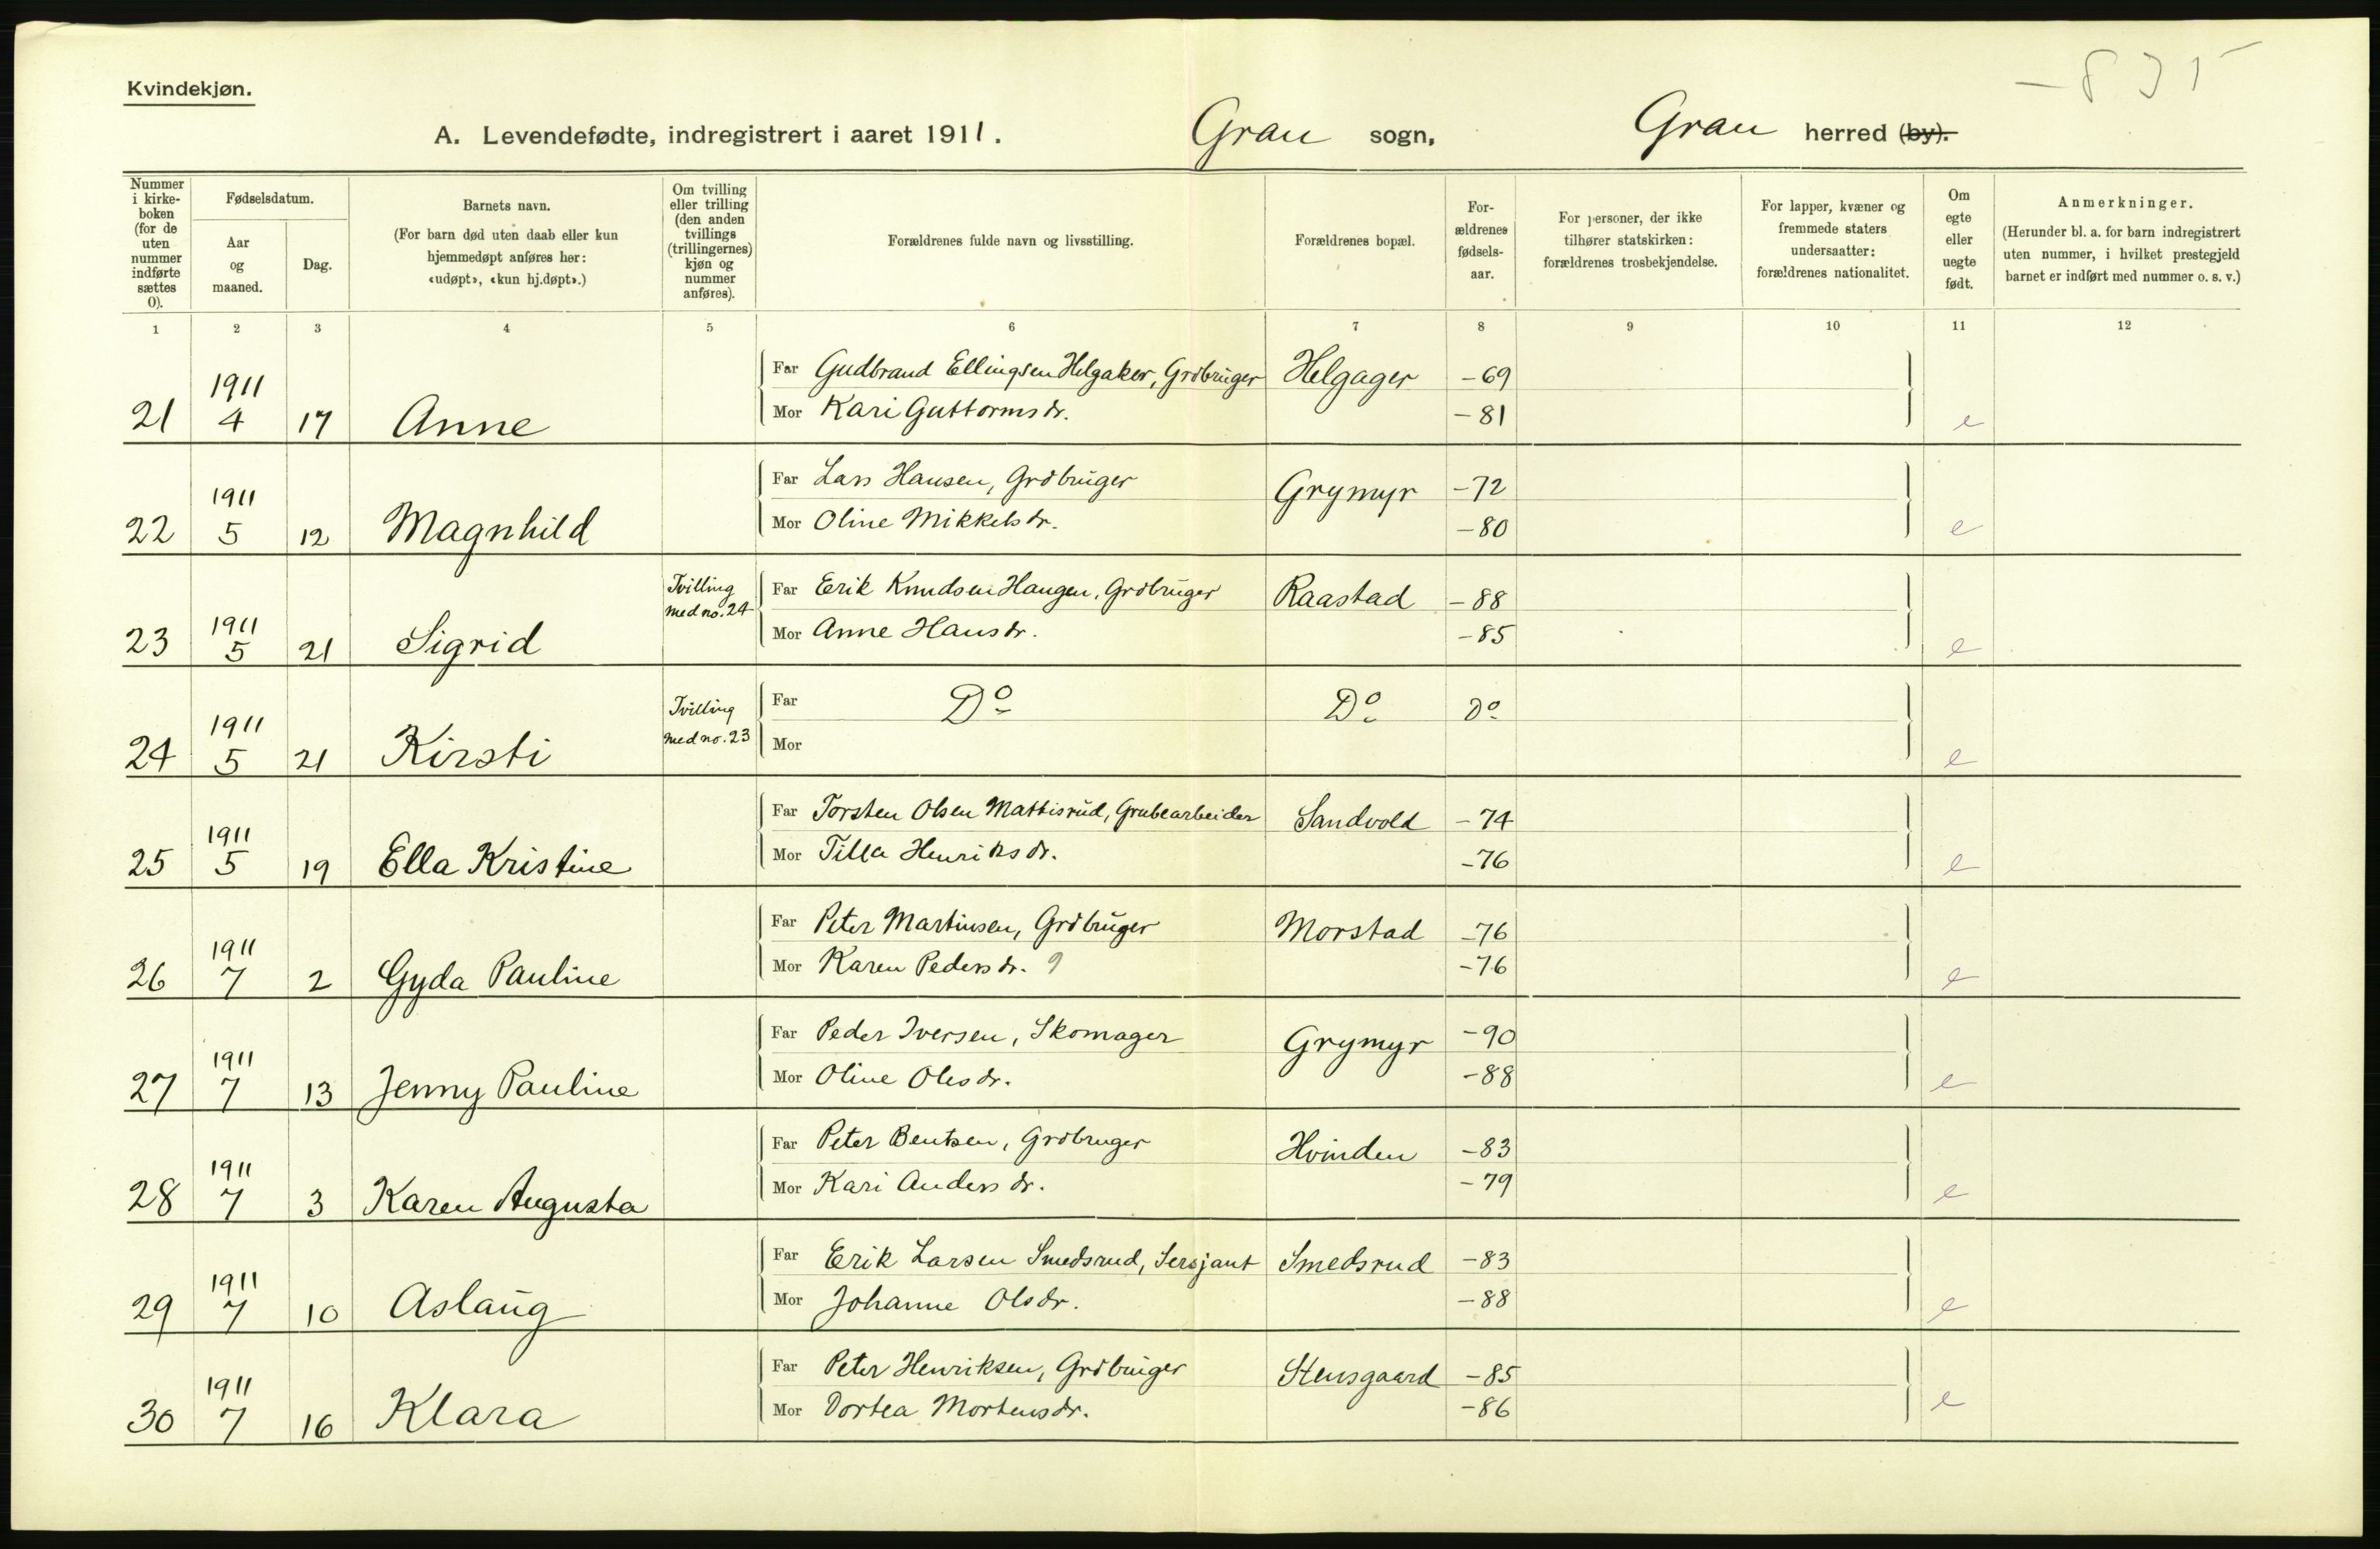 Kvindekjøn.
A. Levendefødte, indregistrert i aaret 1911. Gran sogn, Gran herred (by).
Nummer i kirke-boken (for de uten nummer indførte sættes 0).
Fødselsdatum.
Aar og maaned.
Dag.
Barnets navn.
(For barn død uten daab eller kun hjemmedøpt anføres her: «udøpt», «kun hj.døpt».)
Om tvilling eller trilling (den anden tvillings (trillingernes) kjøn og nummer anføres).
Forældrenes fulde navn og livsstilling.
Forældrenes bopæl.
For-ældrenes fødsels-aar.
For personer, der ikke tilhører statskirken: forældrenes trosbekjendelse.
For lapper, kvæner og fremmede staters undersaatter: forældrenes nationalitet.
Om egte eller uegte født.
Anmerkninger.
(Herunder bl. a. for barn indregistrert uten nummer, i hvilket prestegjeld barnet er indført med nummer o. s. v.)
1 2 3 4 5 6 7 8 9 10 11 12
21 1911 4 17 Anne Far Gudbrand Ellingsen Helgaker, Grdbruger Helgager -69
Mor Kari Guttormsdr. -81 e
22 1911 5 12 Magnhild Far Lars Hansen, Grdbruger Grymyr -72
Mor Oline Mikkelsdr. -80 e
23 1911 5 21 Sigrid Tvilling med no. 24 Far Erik Knudsen Haugen, Grdbruger Raastad -88
Mor Anne Hansdr. -85 e
24 1911 5 21 Kirsti Tvilling med no. 23 Far Do Do do
Mor e
25 1911 5 19 Ella Kristine Far Torsten Olsen Mattisrud, Grubearbeider Sandvold -74
Mor Tilla Henriksdr. -76 e
26 1911 7 2 Gyda Pauline Far Peter Martinsen, Grdbruger Morstad -76
Mor Karen Pedersdr. 9 -76 e
27 1911 7 13 Jenny Pauline Far Peder Iversen, Skomager Grymyr -90
Mor Oline Olesdr. -88 e
28 1911 7 3 Karen Augusta Far Peter Bentsen, Grdbruger Hvinden -83
Mor Kari Andersdr. -79 e
29 1911 7 10 Aslaug Far Erik Larsen Smedsrud, Sersjant Smedsrud -83
Mor Johanne Olsdr. -88 e
30 1911 7 16 Klara Far Peter Henriksen, Grdbruger Stensgaard -85
Mor Dortea Mortensdr. -86 e